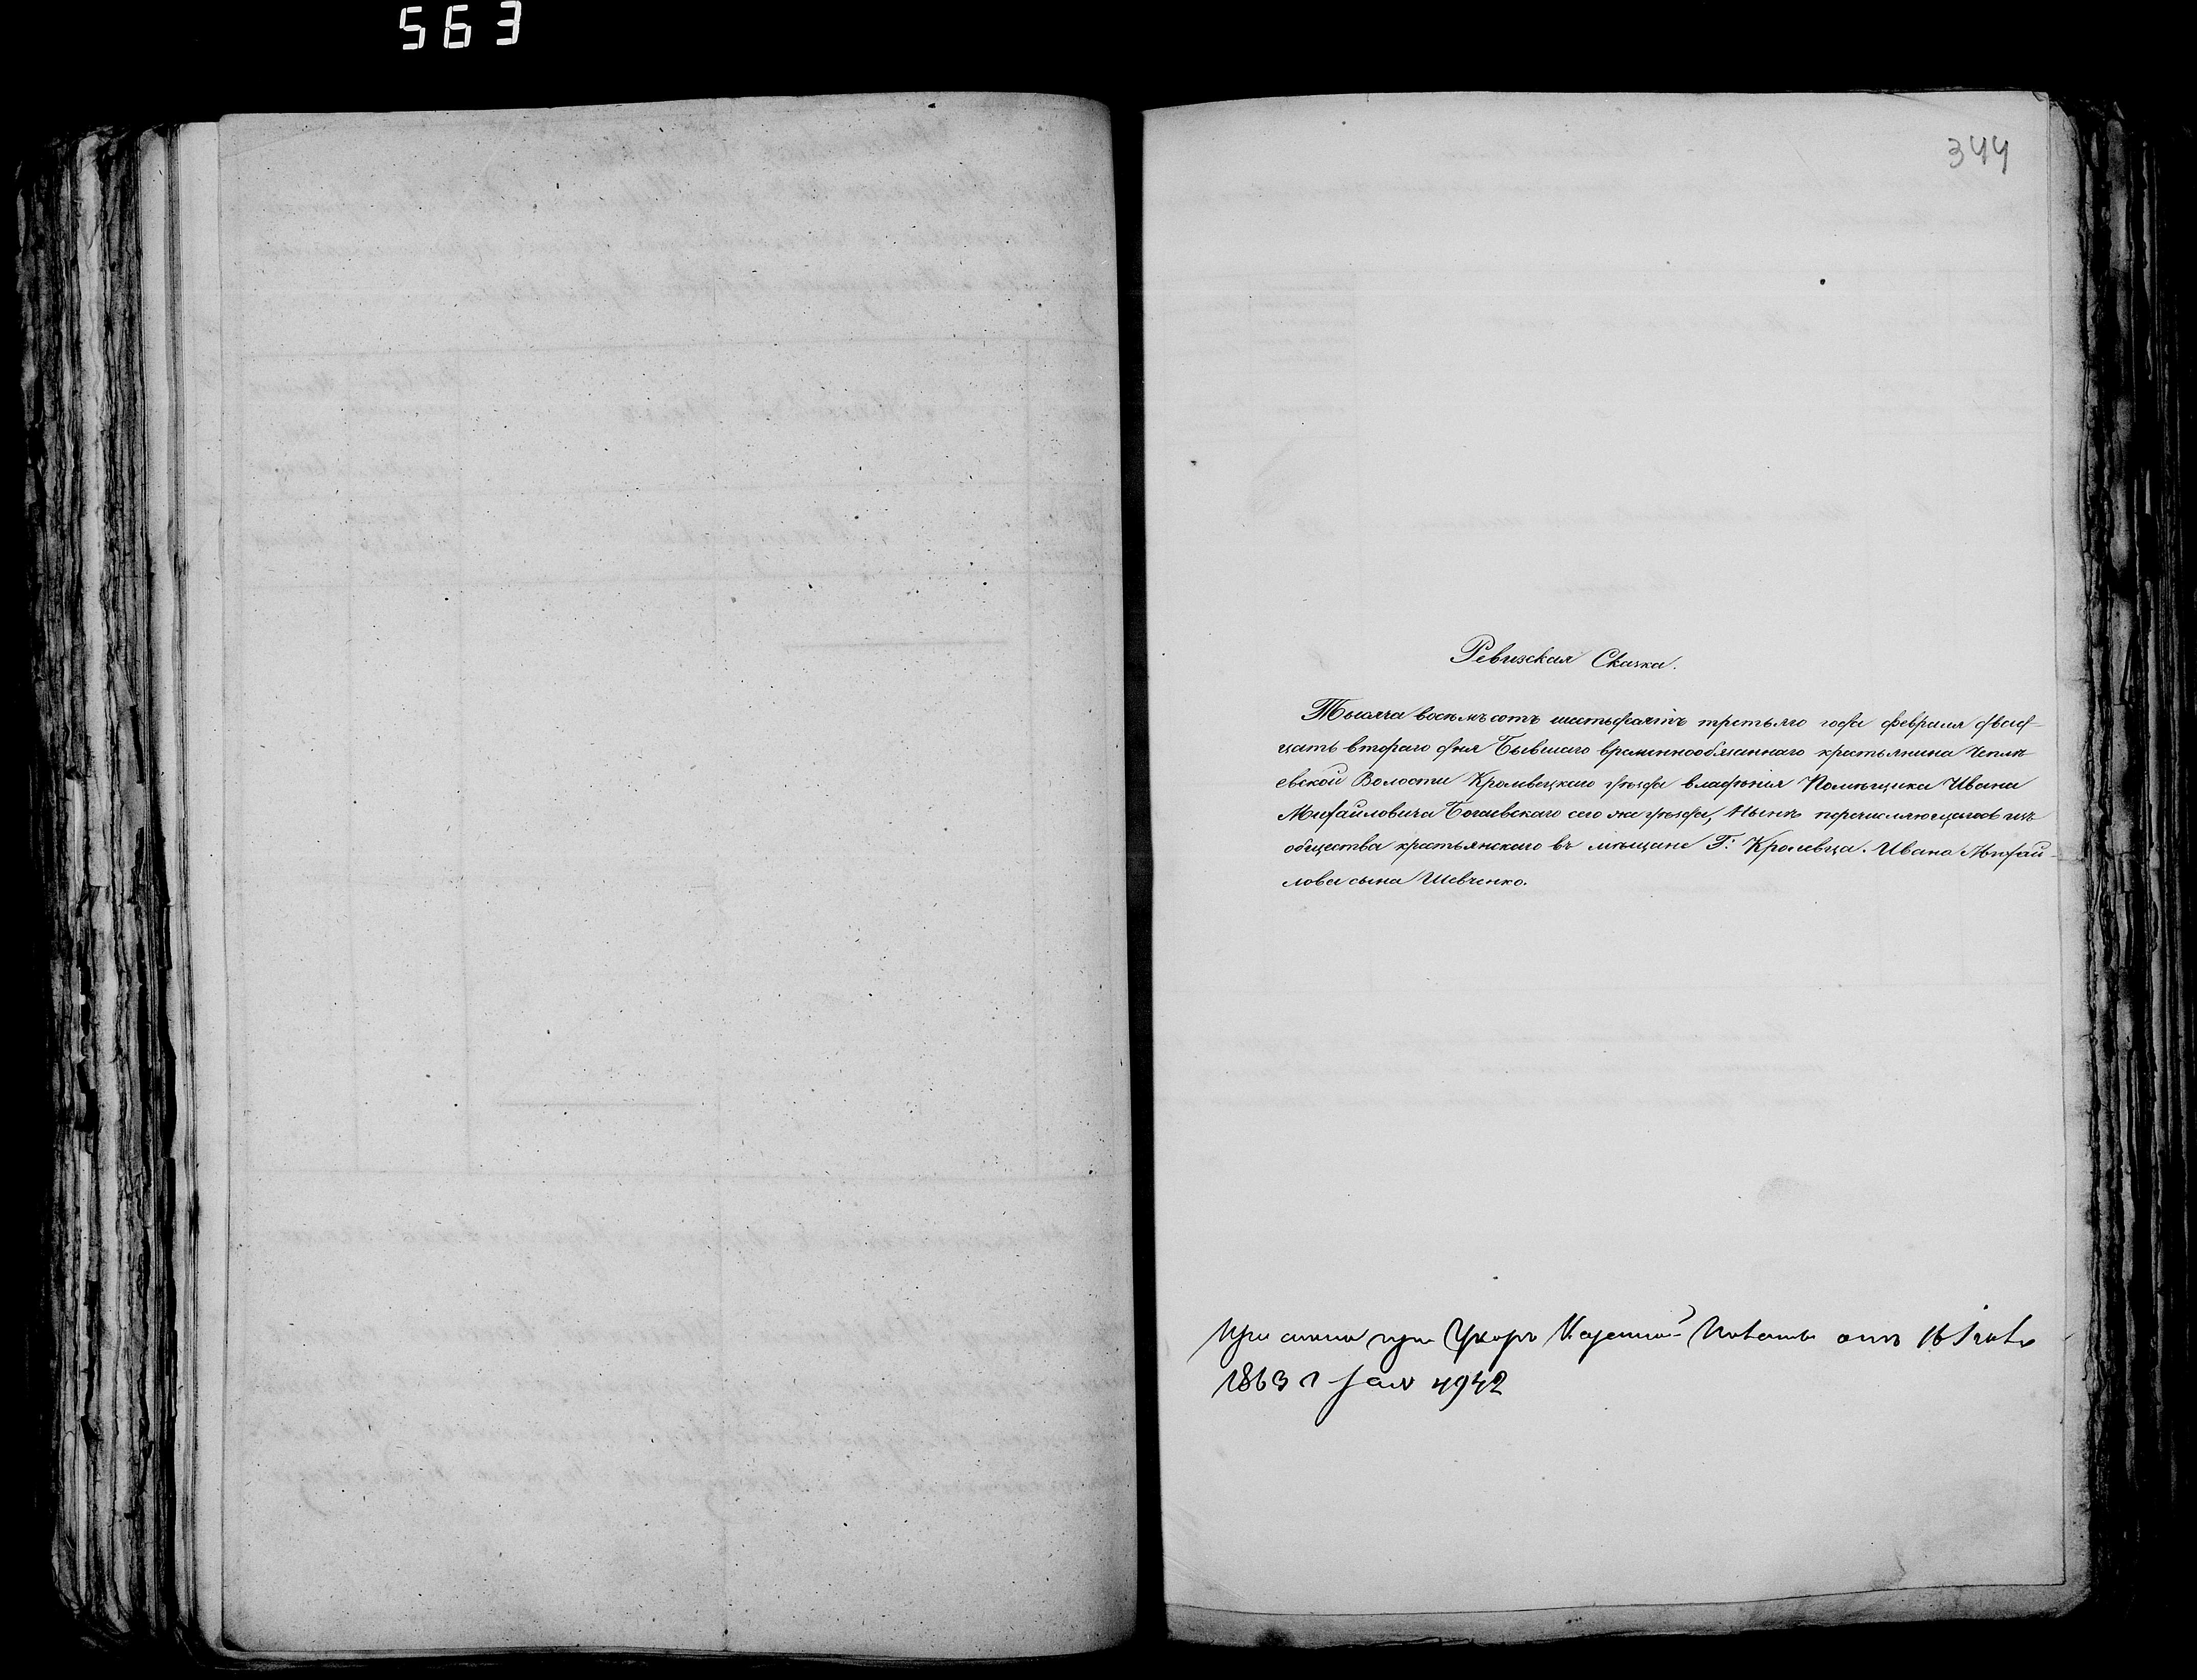 563
344
Ревизская Сказка.
Тысяча восемъ сотъ шестьдесятъ третьяго года февраля двад-
цать втораго дня Бывшаго временнообязаннаго крестьянина Чепли
евской Волости Кролевецкаго уѣзда владѣнія Помѣщика Ивана
Михайловича Богаевскаго сего же уѣзда, Нынѣ перечисляющагося изъ
общества крестьянскаго въ мѣщане Г: Кролевца. Ивана Михай-
лова сына Шевченко.
При Казенной Палаты отъ 16
1863 г за № 4942